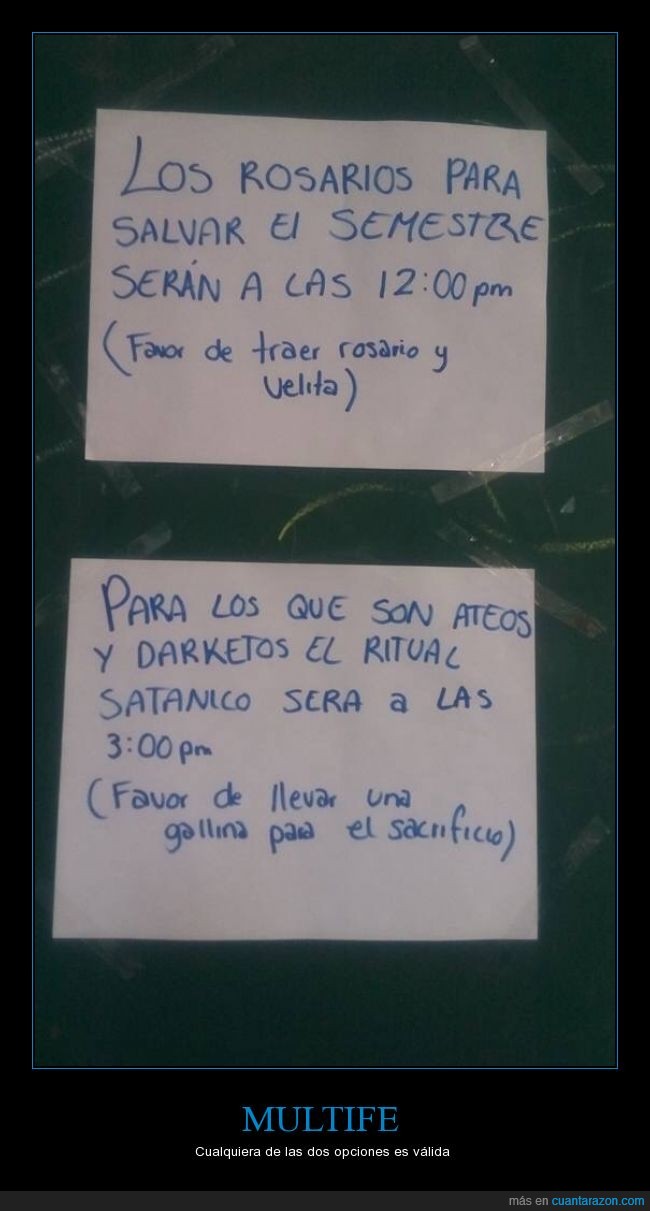 LOS ROSARIOS PARA
SALVAR El SEMESTRE
SERÁN A LAS 12:00 pm
(Favor de traer rosario y
Velita)
PARA LOS QUE SON ATEOS
Y DARKETOS EL RITUAL
SATANICO SERA a LAS
3:00 pm
(Favor de llevar una
gallina para el sacrificio)
MULTIFE
Cualquiera de las dos opciones es válida
más en cuantarazon.com